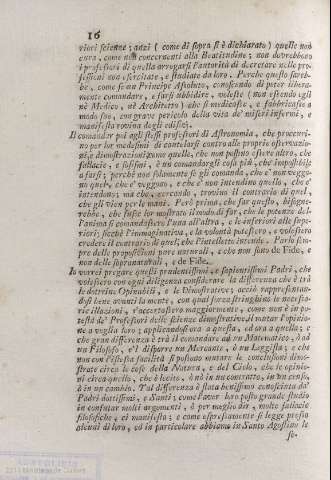 16
riori scienze; anzi (come di sopra si è dichiarato) quelle non
cura, come non concernenti alla Beatitudine; non dovrebbono
i professori di quella arrogarsi l'autorità di decretare nelle pro-
fessioni non esercitate, e studiate da loro. Perchè questo sareb-
be, come se un Principe Assoluto, conoscendo di poter libera-
mente comandare, e farsi ubbidire, volesse (non essendo egli
nè Medico, nè Architetto) che si medicasse, e fabbricasse a
modo suo, con grave pericolo della vita de' miseri infermi, e
manifesta rovina degli edifizj.
Il comandar poi agli stessi professori di Astronomia, che procuri-
no per lor medesimi di cautelarsi contro alle proprie osservazio-
ni, e dimostrazioni, come quelle, che non possino essere altro, che
fallacie, e sofismi, è un comandargli cosa più, che impossibile
a farsi; perchè non solamente se gli comanda, che e' non veggo-
no quel, che e' veggono, e che e' non intendino quello, che e'
intendono; ma che, cercando, trovino il contrario di quel,
che gli vien per le mani. Però prima, che far questo, bisogne-
rebbe, che fusse lor mostrato il modo di far, che le potenze del-
l'anima si comandassero l'una all'altra, e le inferiori alle supe-
riori; sicchè l'immaginativa, e la volontà potessero, e volessero
credere il contrario di quel, che l'intelletto intende. Parlo sem-
pre delle proposizioni pure naturali, e che non sono de Fide, e
non delle sopranaturali, e de Fide.
Io vorrei pregare questi prudentissimi, e sapientissimi Padri, che
volessero con ogni diligenza considerare la differenza che è trà
le dottrine Opinabili, e le Dimostrative; acciò rappresentan-
dosi bene avanti la mente, con qual forza stringhino le necessa-
rie illazioni, s'accertassero maggiormente, come non è in po-
testà de' Professori delle scienze demostrative il mutar l'opinio-
ne a voglia loro; applicandosi ora a questa, ed ora a quella; e
che gran differenza è trà il comandare ad un Matematico, ò ad
un Filosofo, e 'l disporre un Mercante, ò un Legista; e che
non con l'istessa facilità si possono mutare le conclusioni dimo-
strate circa le cose della Natura, e del Cielo, che le opinio-
ni circa quello, che è lecito, ò nò in un contratto, in un censo,
ò in un cambio. Tal differenza è stata benissimo conosciuta da'
Padri dottissimi, e Santi; come l'aver loro posto grande studio
in confutar molti argomenti, ò per meglio dir, molte fallacie
filosofiche, ci manifesta; e come espressamente si legge presso
alcuni di loro, ed in particolare abbiamo in Santo Agostino le
se-